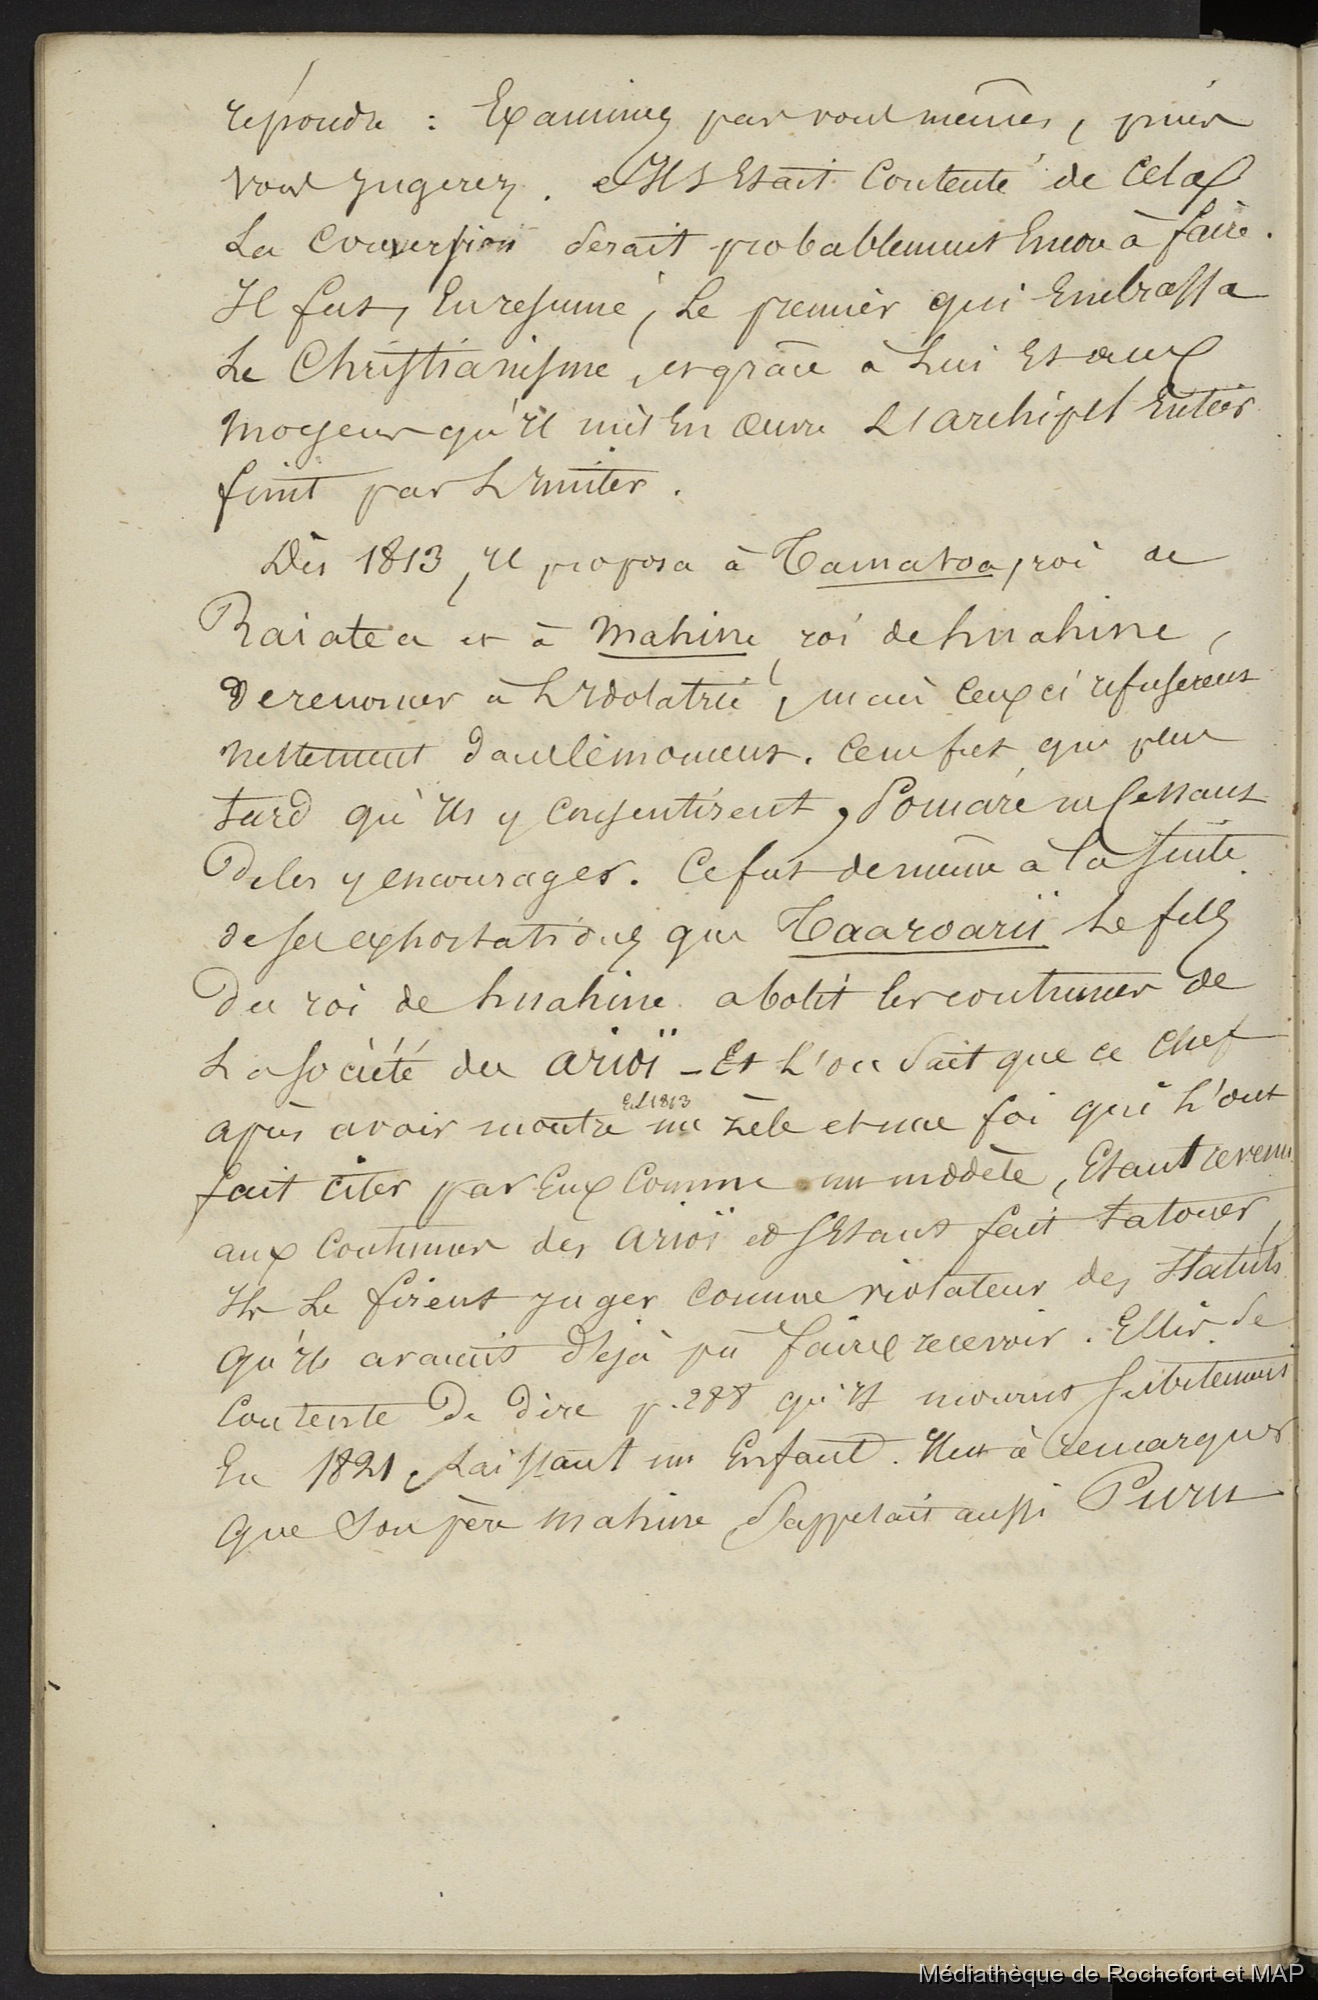 répondre : Examinez par vous mêmes, puis
vous jugerez. S'il s'était contenté de cela
La conversion serait probablement Encore à faire.
Il fut, En résumé, Le premier qui Embrassa
Le Christianisme, et grâce à Lui Et aux
moyens qu'Il mit En œuvre L'archipel Entier
finit par L'Imiter.
Dès 1813, Il proposa à Tamatoa, roi de
Raiatea et à Mahine, roi de huahine,
De renoncer à L'Idolatrie, mais Ceux ci refusèrent
nettement dans le moment. Ce ne fut que plus
tard qu'Ils y Consentirent, Pomaré ne Cessant
De les y encourager. Ce fut de même à La suite
de ses exhortations que Taaroarii Le fils
Du roi de huahine abolit les coutumes de
La société des arioï – Et L'on sait que ce Chef
après avoir montré En 1813 un zèle et une foi qui L'ont
fait citer par Eux Comme un modèle, Etant revenu
aux Coutumes des arioï et s'Etant fait tatouer,
Ils Le firent juger Comme violateur des Statuts
qu'Ils avaient déjà pu faire recevoir. Ellis se
Contente De dire p. 288 qu'Il mourut subitement
En 1821, Laissant un Enfant. Il est à remarquer
que Son père Mahine S'appelait aussi Puru
Médiathèque de Rochefort et MAP